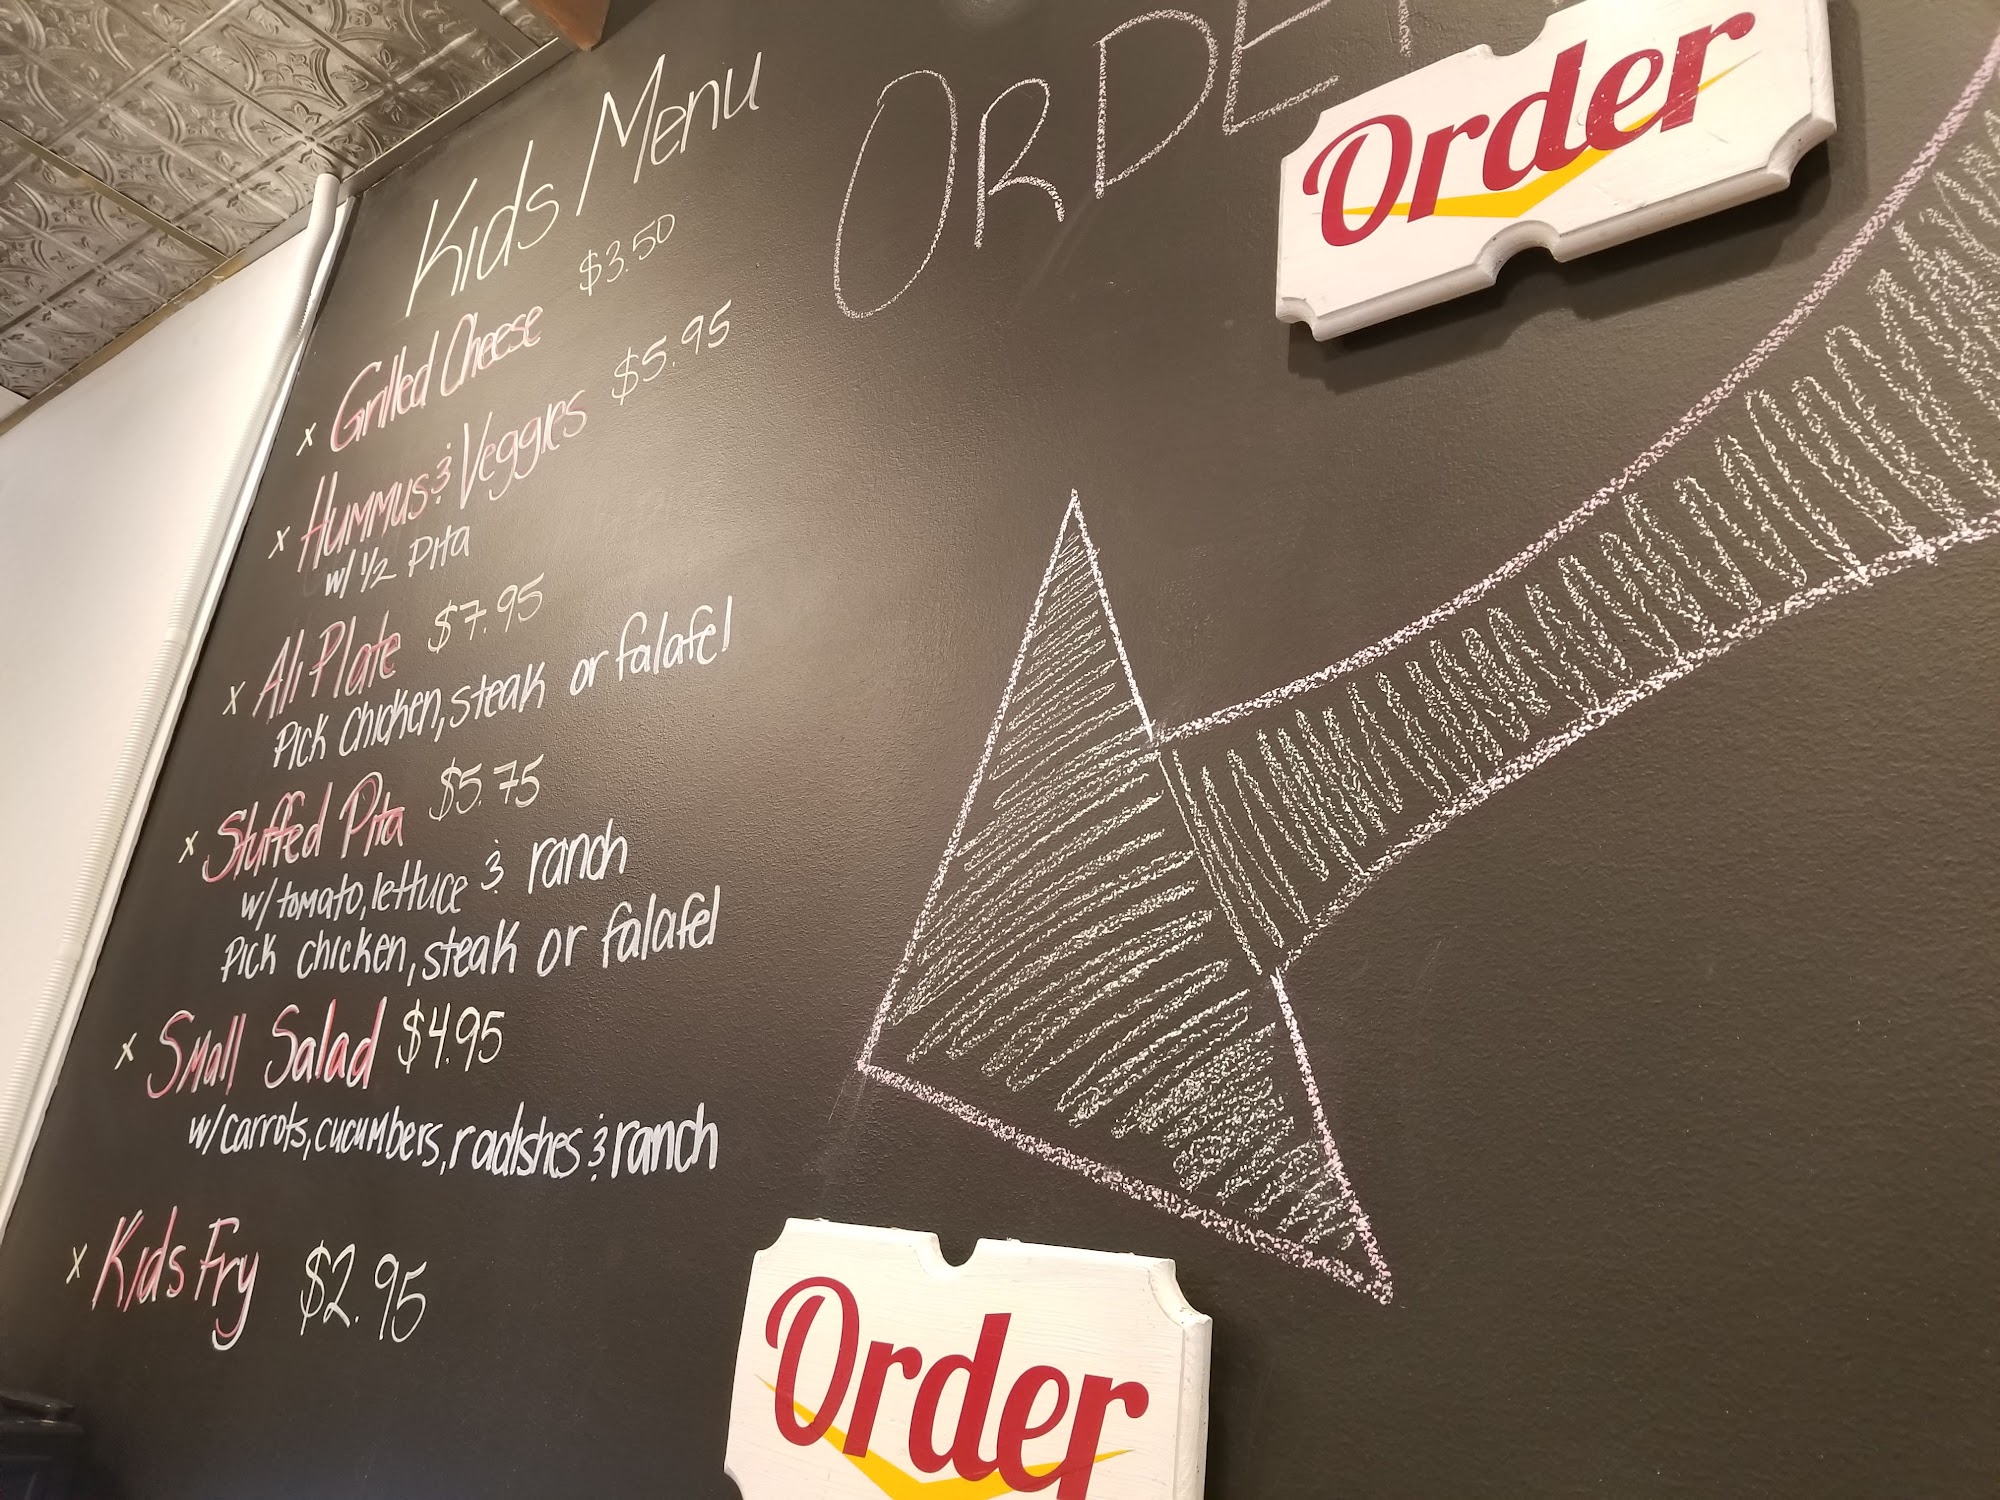 Kids Menu
x Grilled Cheese $3.50
x Hummus & Veggies $5.95
w/ 1/2 Pita
x Ali Plate $7.95
Pick chicken, steak or falafel
x Stuffed Pita $5.75
w/ tomato, lettuce & ranch
Pick chicken, steak or falafel
x Small Salad $4.95
w/ carrots, cucumbers, radishes & ranch
x Kids Fry $2.95
ORDE
Order
Order